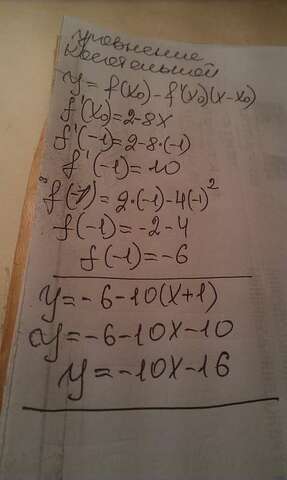 уравнение
касательной
y = f(x₀) - f'(x₀)(x-x₀)
f'(x₀) = 2-8x
f'(-1) = 2-8·(-1)
f'(-1) = 10
f(-1) = 2·(-1)-4(-1)²
f(-1) = -2-4
f(-1) = -6
y = -6-10(x+1)
y = -6-10x-10
y = -10x-16